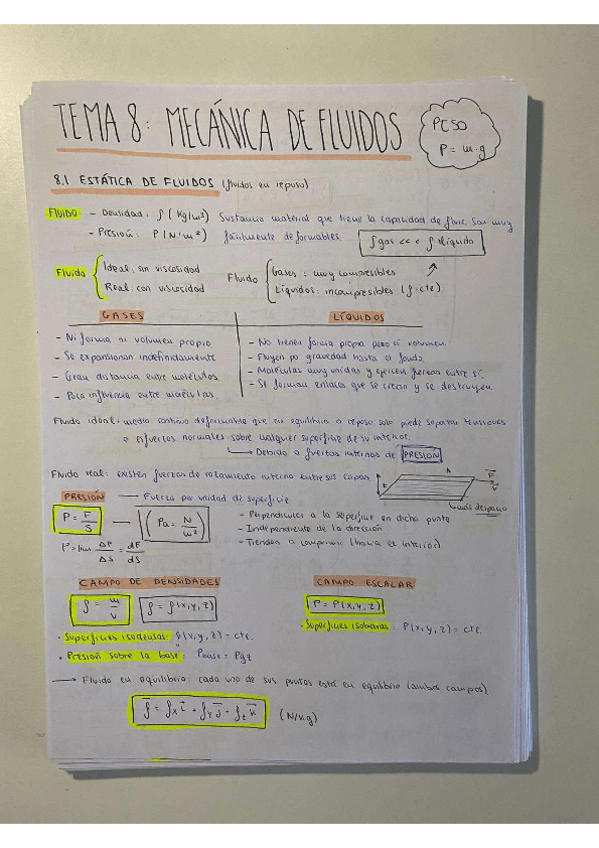 TEMA 8: MECÁNICA DE FLUIDOS
PESO
P = m·g
8.1 ESTÁTICA DE FLUIDOS (fluidos en reposo)
FLUIDO - Densidad: ρ (Kg/m³) Sustancia material que tiene la capacidad de fluir. Son muy
- Presión: P (N/m²) fácilmente deformables. ρgas <<< ρ líquido
Fluido { Ideal: sin viscosidad
Real: con viscosidad
Fluido { Gases: muy compresibles
Líquidos: incompresibles (ρ=cte)
GASES
- Ni forma ni volumen propio
- Se expansionan indefinidamente
- Gran distancia entre moléculas
- Poca influencia entre moléculas.
LÍQUIDOS
- No tienen forma propia pero sí volumen.
- Fluyen por gravedad hasta el fondo.
- Moléculas muy unidas y ejercen fuerzas entre sí.
- Se forman enlaces que se crean y se destruyen.
Fluido ideal: medio continuo deformable que en equilibrio o reposo solo puede soportar tensiones
o esfuerzos normales sobre cualquier superficie de su interior.
↳ Debido a fuerzas internas de PRESIÓN
Fluido real: existen fuerzas de rozamiento interno entre sus capas
A
F
v
PRESIÓN → Fuerza por unidad de superficie
P = F/S → (Pa = N/m²)
P = lim ΔF/ΔS = dF/dS
- Perpendicular a la superficie en dicho punto
- Independiente de la dirección
- Tienden a comprimir (hacia el interior)
CAMPO DE DENSIDADES
ρ = m/v ρ = ρ(x,y,z)
· Superficies isodensas: ρ(x,y,z) = cte.
· Presión sobre la base: Pbase = ρgz
CAMPO ESCALAR
P = P(x,y,z)
· Superficies isobaras: P(x,y,z) = cte.
→ Fluido en equilibrio: cada uno de sus puntos está en equilibrio (ambos campos)
f = fx i + fy j + fz k (N/kg)